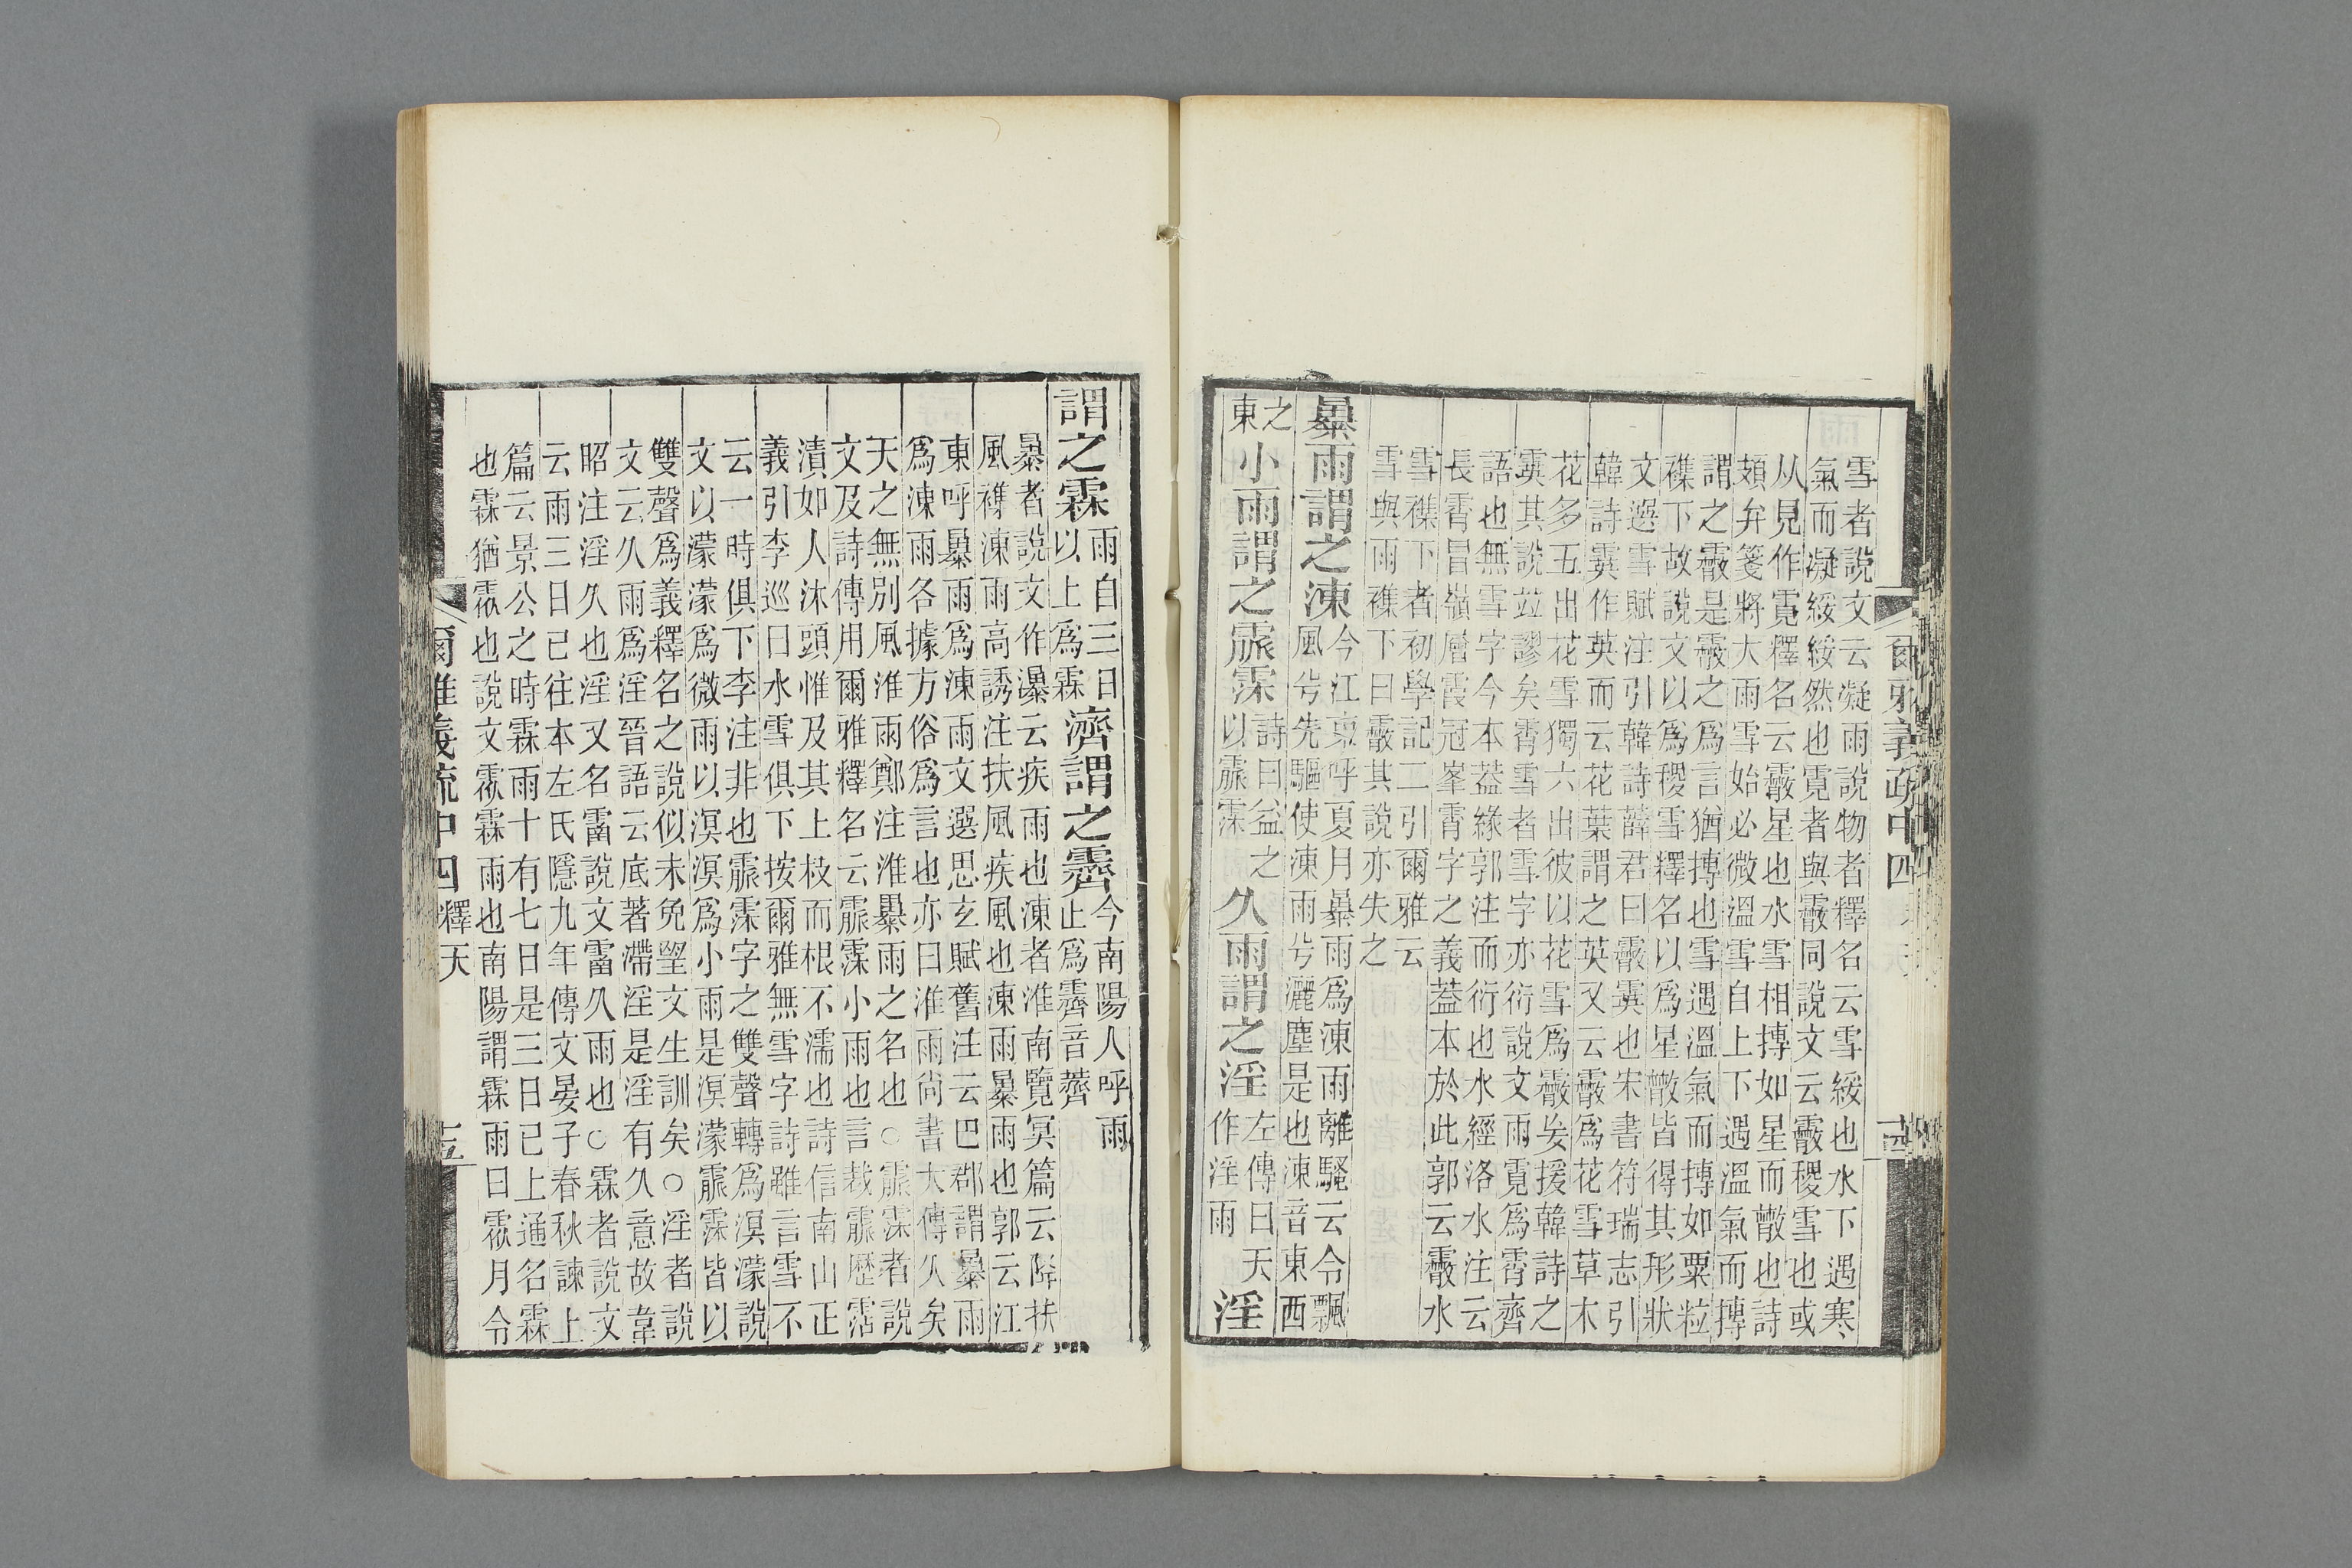 爾雅義疏中四 釋天
十四
雪者說文云凝雨說物者釋名云雪綏也水下遇寒
氣而凝綏綏然也霓者與霰同說文云霰稷雪也或
从見作霓釋名云霰星也水雪相摶如星而散也詩
頍弁箋將大雨雪始必微溫雪自上下遇溫氣而摶
謂之霰是霰之爲言猶摶也雪遇溫氣而摶如粟粒
襍下故說文以爲稷雪釋名以爲星散皆得其形狀
文選雪賦注引韓詩薛君曰霰霙也宋書符瑞志引
韓詩霙作英而云花葉謂之英又云霰爲花雪草木
花多五出花雪獨六出彼以花雪爲霰妄援韓詩之
霙其說竝謬矣霄雪者雪字亦衍說文雨霓爲霄齊
語也無雪字今本葢緣郭注而衍也水經洛水注云
長霄冒嶺層霞冠峯霄字之義葢本於此郭云霰水
雪襍下者初學記二引爾雅云
雪與雨襍下曰霰其說亦失之
暴雨謂之涷今江東呼夏月暴雨爲涷雨離騷云令飄
風兮先驅使涷雨兮灑塵是也涷音東西
之東小雨謂之霡霂詩曰益之以霡霂久雨謂之淫左傳曰天作淫雨淫
謂之霖雨自三日以上爲霖濟謂之霽今南陽人呼雨止爲霽音薺
暴者說文作瀑云疾雨也涷者淮南覽冥篇云降扶
風襍涷雨高誘注扶風疾風也涷雨暴雨也郭云江
東呼暴雨爲涷雨文選思玄賦舊注云巴郡謂暴雨
爲涷雨各據方俗爲言也亦曰淮雨尚書大傳久矣
天之無別風淮雨鄭注淮暴雨之名也○霡霂者說
文及詩傳用爾雅釋名云霡霂小雨也言裁霡歷霑
漬如人沐頭惟及其上枝而根不濡也詩信南山正
義引李巡曰水雪俱下按爾雅無雪字詩雖言雪不
云一時俱下李注非也霡霂字之雙聲轉爲溟濛說
文以濛濛爲微雨以溟溟爲小雨是溟濛霡霂皆以
雙聲爲義釋名之說似未免望文生訓矣○淫者說
文云久雨爲淫晉語云底著滯淫是淫有久意故韋
昭注淫久也淫又名䨡說文䨡久雨也○霖者說文
云雨三日已往本左氏隱九年傳文晏子春秋諫上
篇云景公之時霖雨十有七日是三日已上通名霖
也霖猶䨙也說文䨙霖雨也南陽謂霖雨曰䨙月令
爾雅義疏中四 釋天
十五